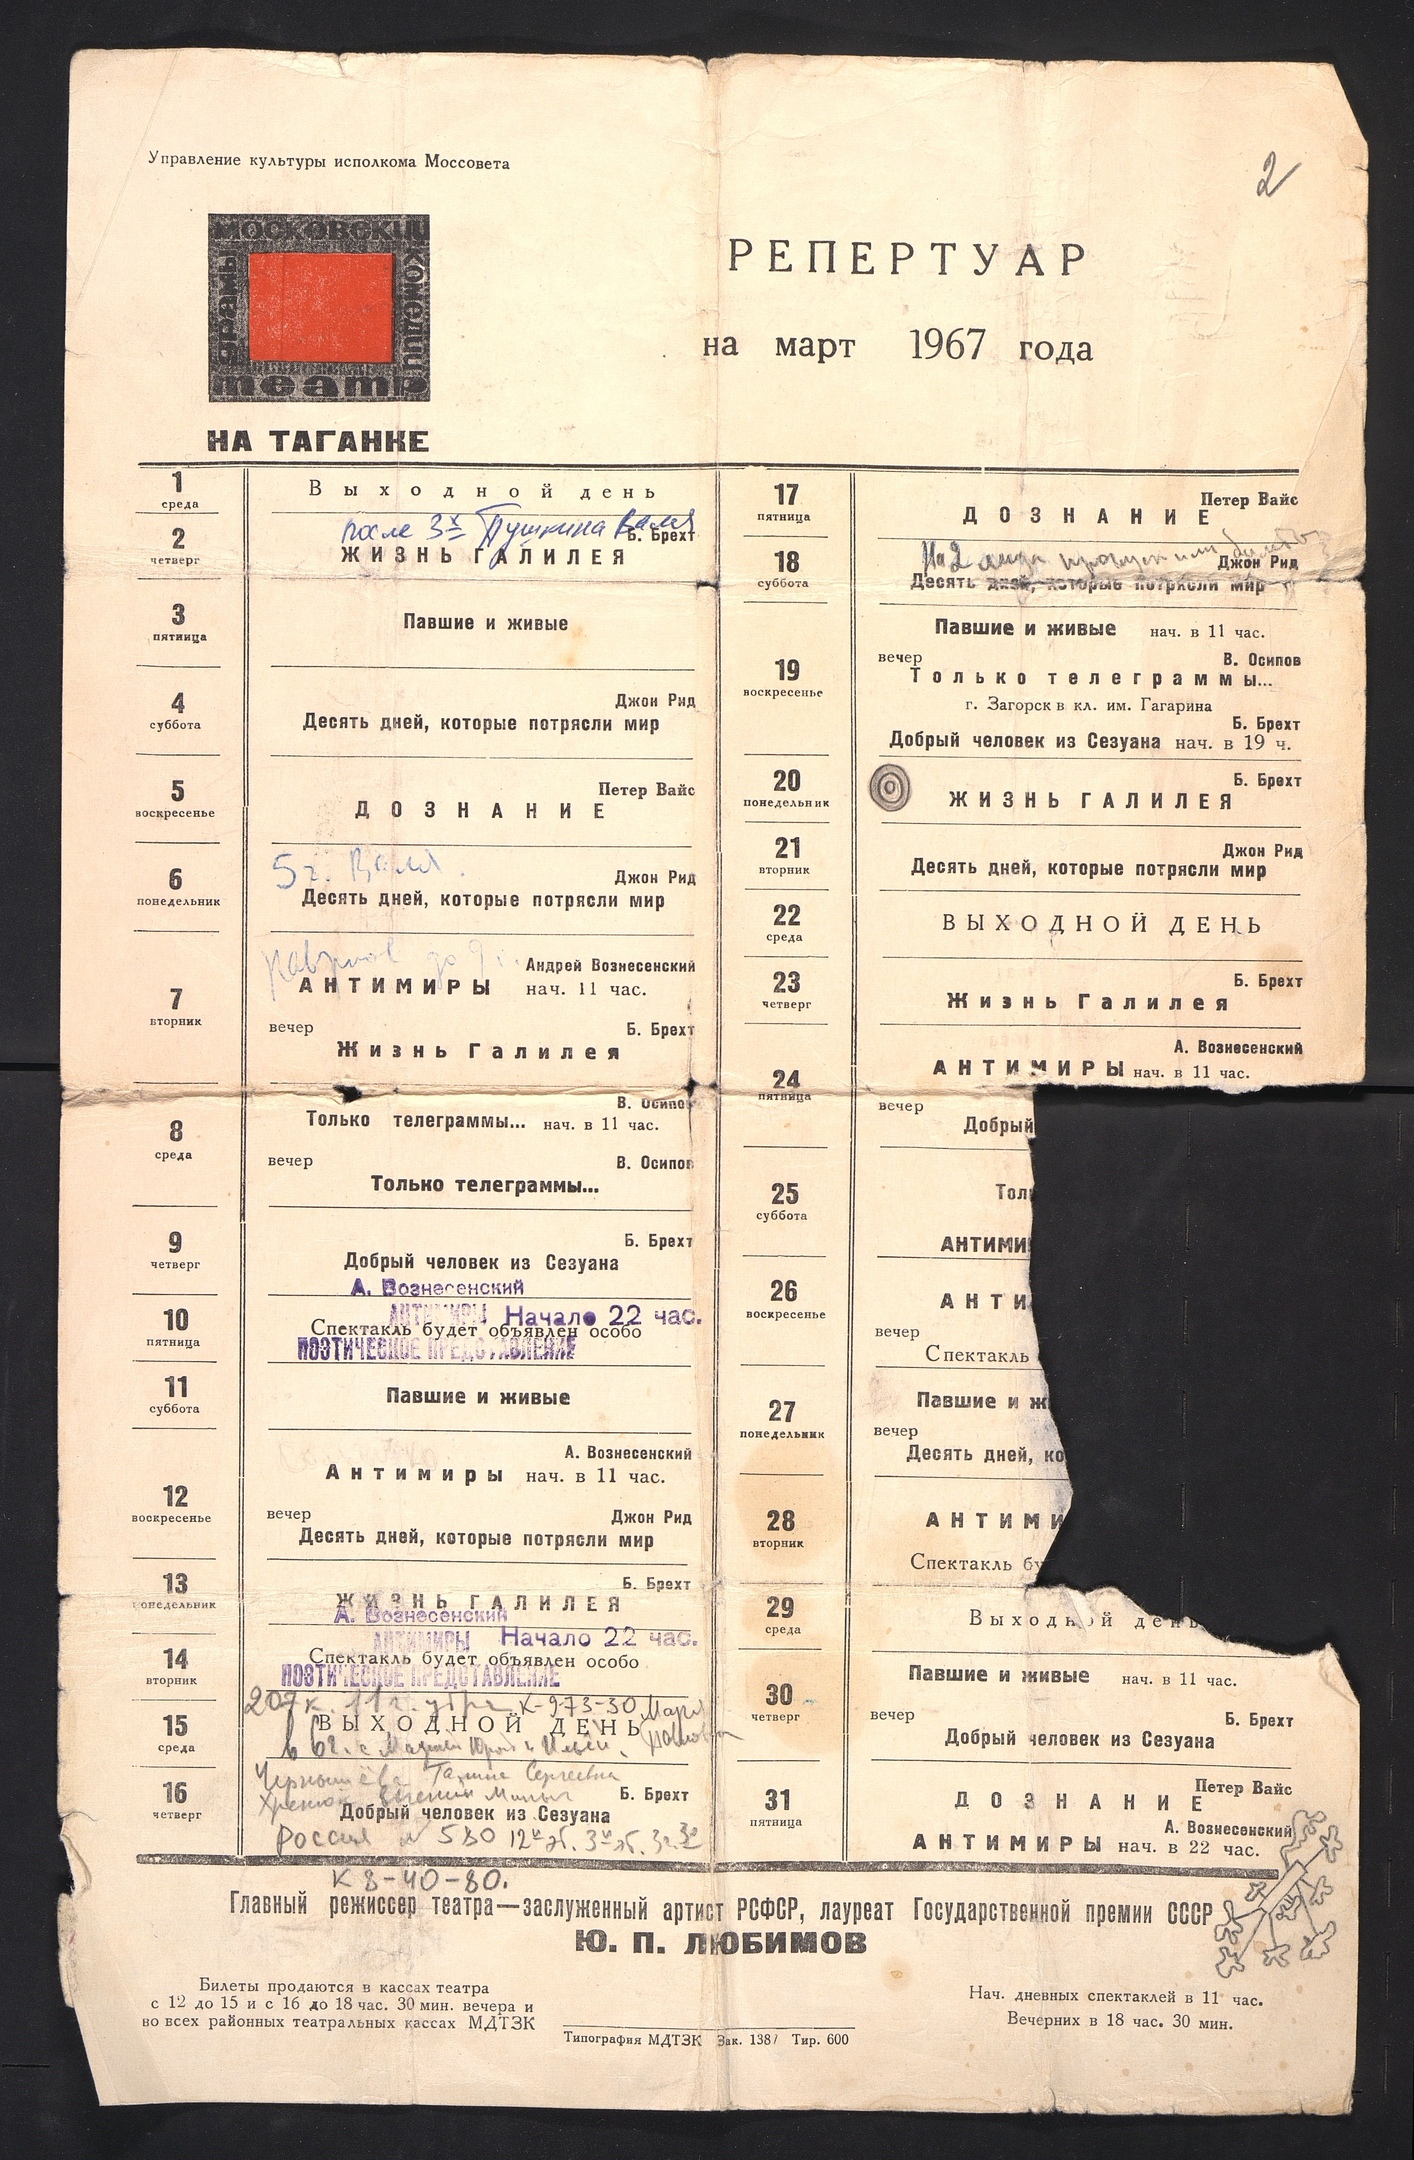 Управление культуры исполкома Моссовета
2
МОСКОВСКИЙ
ДРАМЫ
КОМЕДИИ
театр
НА ТАГАНКЕ
РЕПЕРТУАР
на март 1967 года
1
среда
Выходной день
после 3х Пушкина Валя
2
четверг
Б. Брехт
ЖИЗНЬ ГАЛИЛЕЯ
3
пятница
Павшие и живые
4
суббота
Джон Рид
Десять дней, которые потрясли мир
5
воскресенье
Петер Вайс
ДОЗНАНИЕ
5 г. Валя.
6
понедельник
Джон Рид
Десять дней, которые потрясли мир
до 9
7
вторник
Андрей Вознесенский
АНТИМИРЫ нач. 11 час.
вечер Б. Брехт
Жизнь Галилея
8
среда
В. Осипов
Только телеграммы... нач. в 11 час.
вечер В. Осипов
Только телеграммы...
9
четверг
Б. Брехт
Добрый человек из Сезуана
А. Вознесенский
10
пятница
АНТИМИРЫ Начало 22 час.
Спектакль будет объявлен особо
ПОЭТИЧЕСКОЕ ПРЕДСТАВЛЕНИЕ
11
суббота
Павшие и живые
12
воскресенье
А. Вознесенский
Антимиры нач. в 11 час.
вечер Джон Рид
Десять дней, которые потрясли мир
13
онедельник
Б. Брехт
ЖИЗНЬ ГАЛИЛЕЯ
А. Вознесенский
14
вторник
АНТИМИРЫ Начало 22 час.
Спектакль будет объявлен особо
ПОЭТИЧЕСКОЕ ПРЕДСТАВЛЕНИЕ
207 к. 11 г. утра К-973-30
15
среда
ВЫХОДНОЙ ДЕНЬ
Чернышёва Галине Сергеевна
16
четверг
Б. Брехт
Добрый человек из Сезуана
Россия 580 12
К 8-40-80.
17
пятница
Петер Вайс
ДОЗНАНИЕ
На 2 лица пропуск или билеты
18
суббота
Джон Рид
Десять дней, которые потрясли мир
19
воскресенье
Павшие и живые нач. в 11 час.
вечер В. Осипов
Только телеграммы...
г. Загорск в кл. им. Гагарина
Б. Брехт
Добрый человек из Сезуана нач. в 19 ч.
20
понедельник
Б. Брехт
ЖИЗНЬ ГАЛИЛЕЯ
21
вторник
Джон Рид
Десять дней, которые потрясли мир
22
среда
ВЫХОДНОЙ ДЕНЬ
23
четверг
Б. Брехт
Жизнь Галилея
24
пятница
А. Вознесенский
АНТИМИРЫ нач. в 11 час.
вечер
Добрый
25
суббота
Тол
АНТИМИ
26
воскресенье
АНТИ
вечер
Спектакль
27
понедельник
Павшие и ж
вечер
Десять дней, ко
28
вторник
АНТИМИ
Спектакль бу
29
среда
Выходной день
30
четверг
Павшие и живые нач. в 11 час.
вечер Б. Брехт
Добрый человек из Сезуана
31
пятница
Петер Вайс
ДОЗНАНИЕ
А. Вознесенский
АНТИМИРЫ нач. в 22 час.
Главный режиссер театра—заслуженный артист РСФСР, лауреат Государственной премии СССР
Ю. П. ЛЮБИМОВ
Билеты продаются в кассах театра
с 12 до 15 и с 16 до 18 час. 30 мин. вечера и
во всех районных театральных кассах МДТЗК
Типография МДТЗК Зак. 1387 Тир. 600
Нач. дневных спектаклей в 11 час.
Вечерних в 18 час. 30 мин.